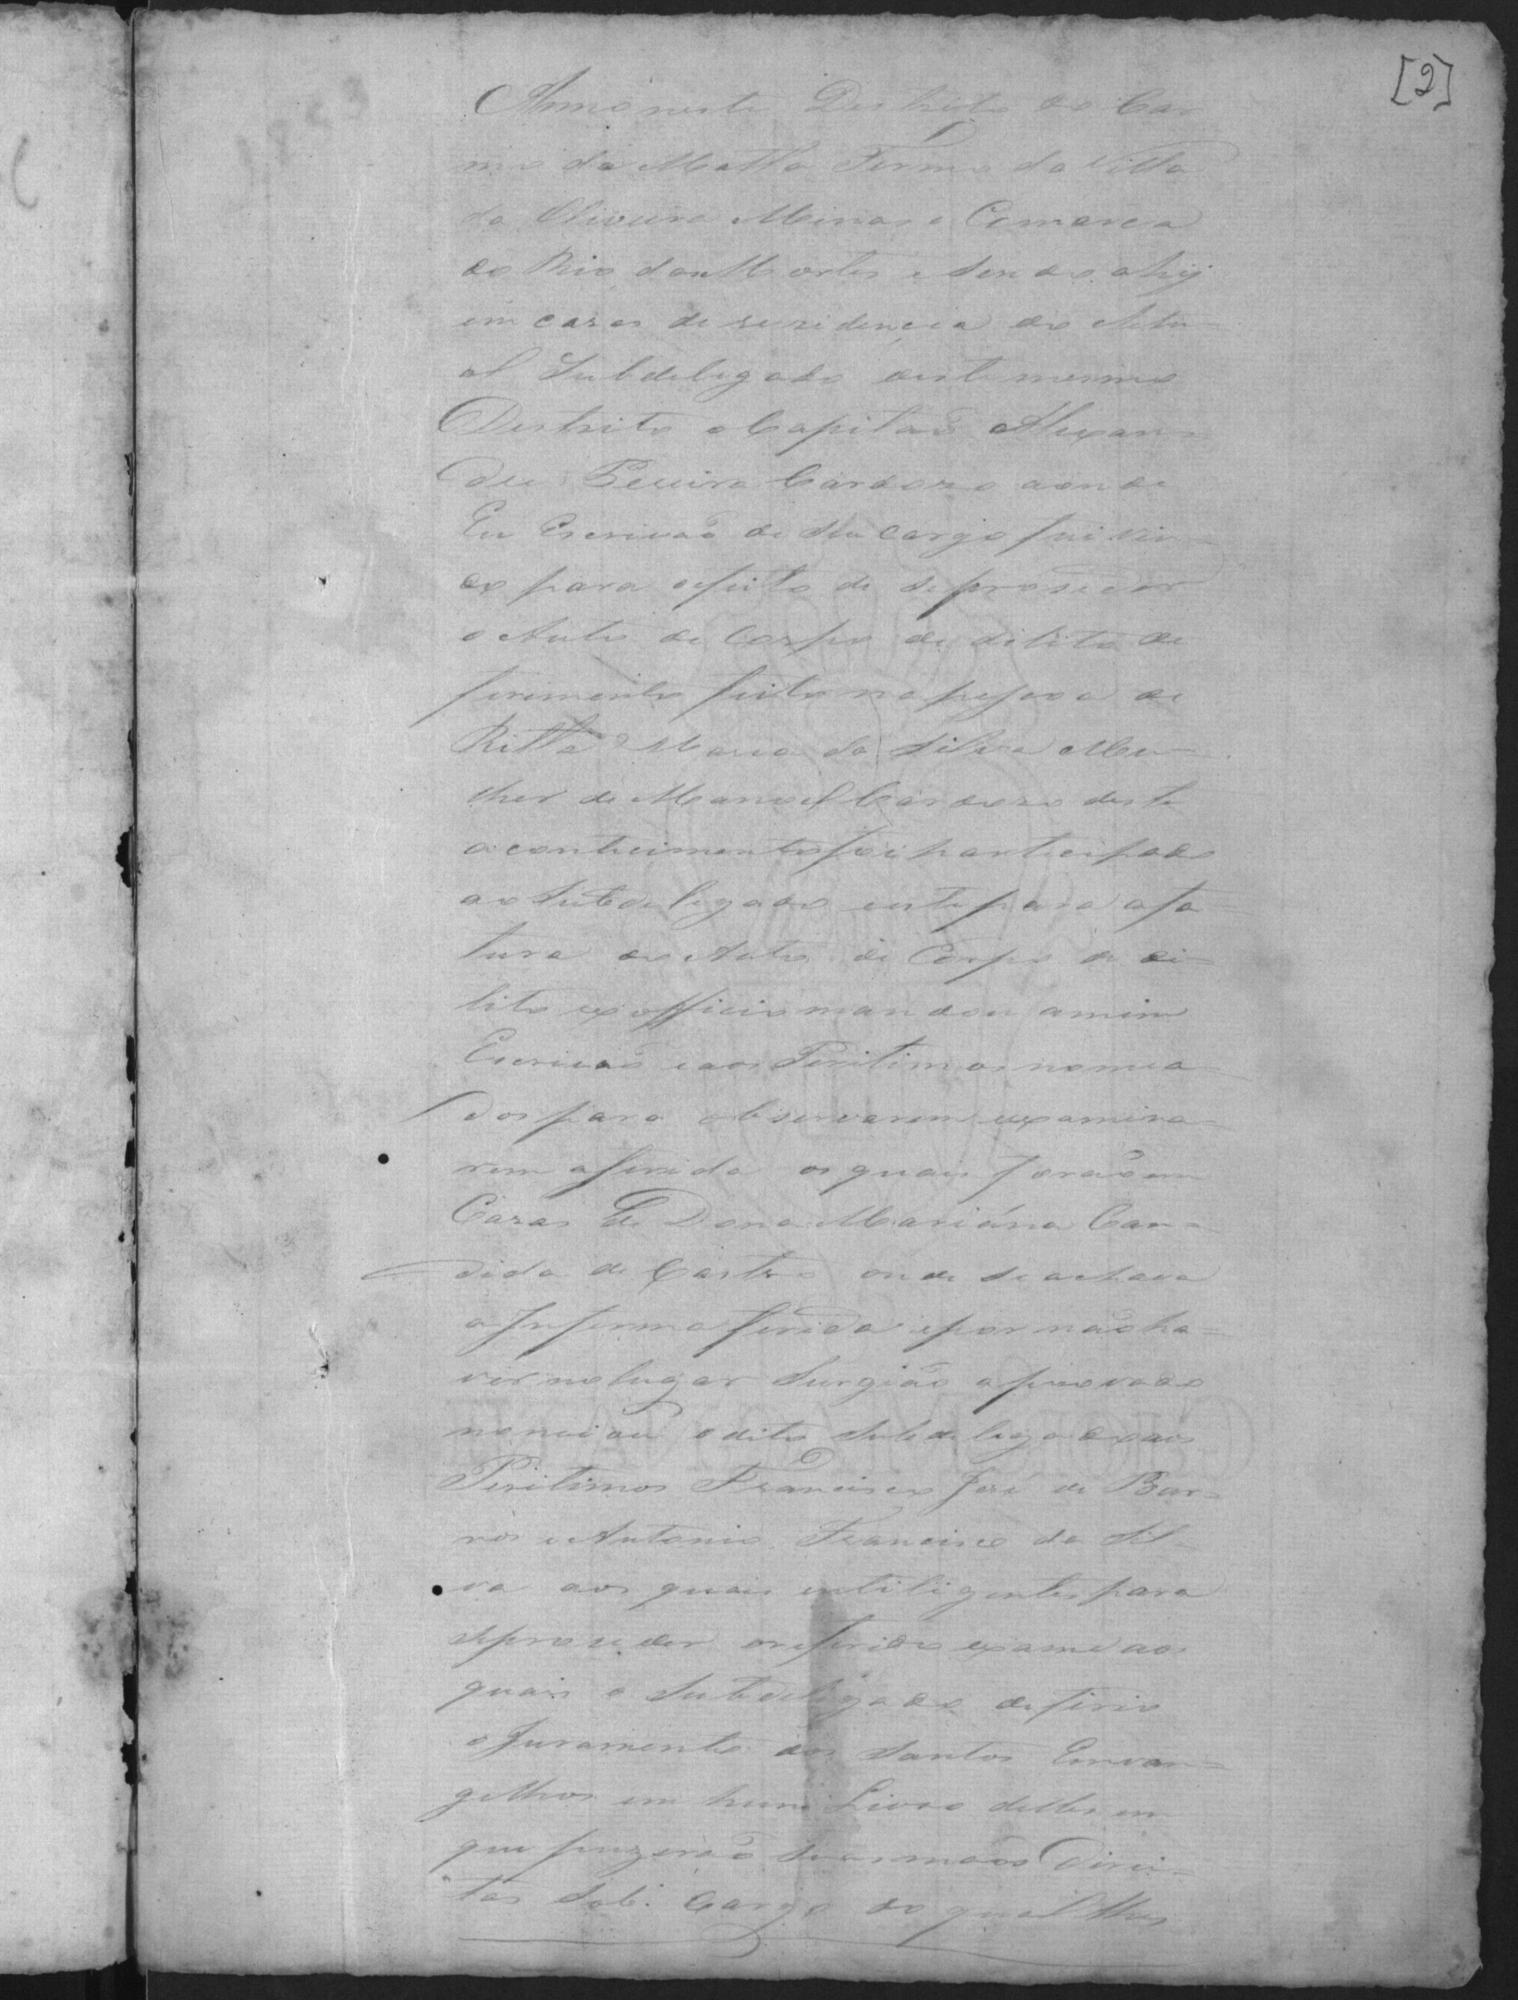 [2]
Anno neste Destrito do Car
mo da Matta Termo da Villa
da Oliveira Minas e Comarca
do Rio das Mortes e sendo ahy
em cazas de rezidencia do Atu-
al Subdelegado deste mesmo
Destrito o Capitaõ Alexan-
dre Pereira Cardozo aonde
Eu Escrivaõ de seu cargo fui vin-
do para efeito de se proseder
o Auto de Corpo de dilito de
ferimento feito na pessoa de
Ritta Maria da Silva Mu-
lher de Manoel Cardozo deste
acontecimento foi participado
ao Subdelegado este para afa
tura do Auto de Corpo de di-
lito exofficio mandou amim
Escrivaõ e aos Peritimos nomea
dos para observarem e examina-
rem aferida os quais foraõ em
Cazas de Dona Mariána Can-
dida de Castro onde se achava
a Inferma ferida e por naõ ha-
ver no lugar Surgiaõ aprovado
nomiou o dito Subdelegado aos
Peritimos Francisco José de Bar-
ros e Antonio Francisco da Sil-
va aos quais intiligentes para
se proseder oreferido exame aos
quais o Subdelegado deferio
o Juramento dos Santos Envan-
gelhos em hum Livro delles em
que puzeraõ suas maõs Direi-
tas Sob. Cargo do qual lhes